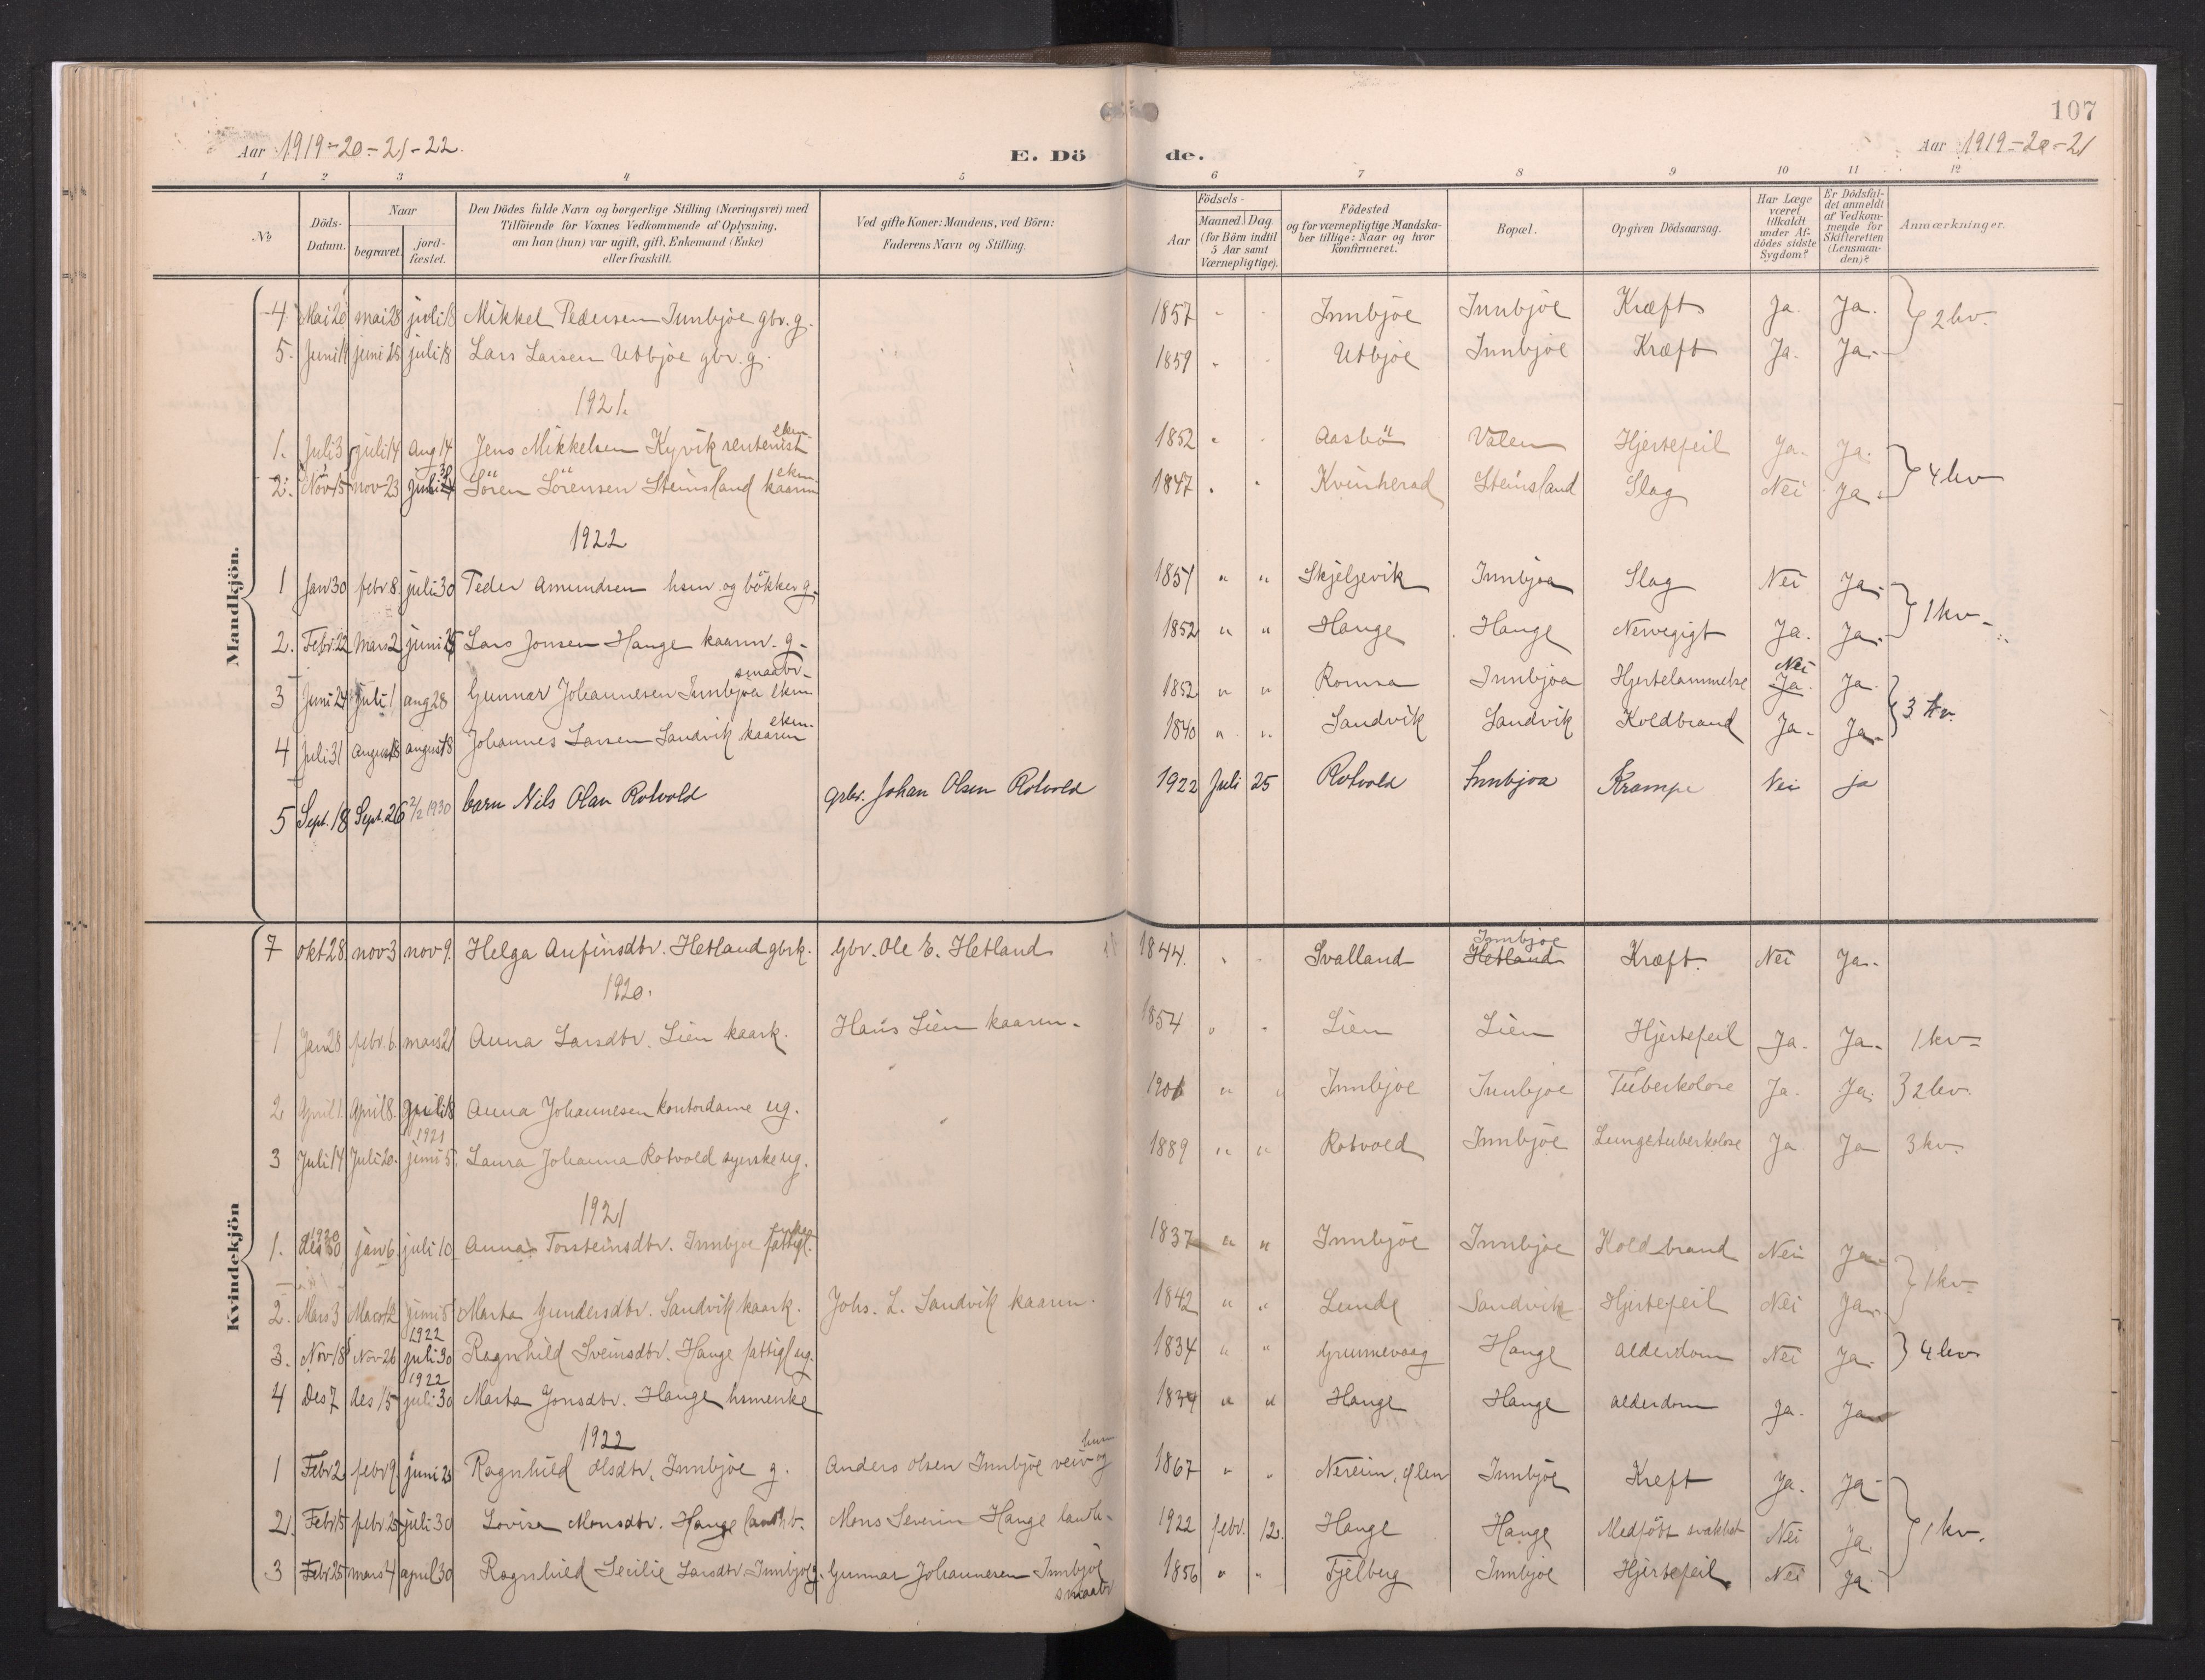 107
Aar 1919-20-21-22.
E. Döde.
Aar 1919-20-21
1 2 3 4 5 6 7 8 9 10 11 12
No
Döds-Datum.
Naar
begravet.
jord-fæstet.
Den Dödes fulde Navn og borgerlige Stilling (Næringsvei) med
Tilföiende for Voxnes Vedkommende af Oplysning,
om han (hun) var ugift, gift, Enkemand (Enke)
eller fraskilt.
Ved gifte Koner: Mandens, ved Börn:
Faderens Navn og Stilling.
Födsels-
Aar
Maaned. Dag
(for Börn indtil
5 Aar samt
Værnepligtige).
Födested
og for værnepligtige Mandska-
ber tillige: Naar og hvor
konfirmeret.
Bopæl.
Opgiven Dödsaarsag.
Har Læge
været
tilkaldt
under Af-
dödes sidste
Sygdom?
Er Dödsfal-
det anmeldt
af Vedkom-
mende for
Skifteretten
(Lensman-
den)?
Anmærkninger.
Mandkjön.
4 Mai 20 mai 28 juli 18 Mikkel Pedersen Innbjoe gbr. g. 1857 " " Innbjoe Innbjoe Kræft Ja. Ja. } 2 kv.
5. Juni 11 juni 25 juli 18 Lars Larsen Utbjoe gbr. g. 1859 " " Utbjoe Innbjoe Kræft Ja. Ja.
1921.
1. Juli 3 juli 14 Aug 14 Jens Mikkelsen Kyvik rentenist ekm. 1852 " " Aasbö Valen Hjertefeil Ja. Ja. } 4 kv
2. Nov 15 nov 23 juli Sören Sörensen Steinsland kaarm ekm. 1847 " " Kvinherad Steinsland Slag Nei Ja.
1922
1 Jan 30 febr 8. juli 30 Peder Amundsen hsm og bökker g. 1851 " " Skjeljevik Innbjoa Slag Nei Ja. } 1 kv.
2. Febr. 22 Mars 2 juni 25 Lars Jonsen Hauge kaarm. g. 1852 " " Hauge Hauge Nervegigt Ja. Ja.
3 Juni 24 juli 1 aug 28 Gunnar Johannesen Innbjoa smaabr. ekm 1852 " " Romsa Innbjoa Hjertelammelse Nei Ja. Ja } 3 kv.
4 Juli 31 august 8 august 18 Johannes Larsen Sandvik kaarm ekm. 1840 " " Sandvik Sandvik Koldbrand Ja. Ja.
5 Sept. 18 Sept. 26 2/2 1930 barn Nils Olav Rotvold gbr. Johan Olsen Rotvold 1922 Juli 25 Rotvold Innbjoa Krampe Nei ja
Kvindekjön
7 okt 28 nov 3 nov 9. Helga Anfinsdtr. Hetland gbrk. Gbr. Ole E. Hetland 1844. " " Svalland Innbjoe Hetland Kræft. Nei Ja.
1920.
1 Jan 28 febr. 6. mars 21 Anna Larsdtr. Lien kaark. Hans Lien kaarm. 1854 " " Lien Lien Hjertefeil Ja. Ja. 1 kv
2 April 1. April 8. juli 18 Anna Johannesen kontordame ug. 1901 " " Innbjoe Innbjoe Tuberkolose Ja. Ja. } 2 kv.
3 Juli 14 Juli 20. 1921 juni 5. Laura Johanna Rotvold syerske ug. 1889 " " Rotvold Innbjoe Lungetuberkolose Ja Ja 3 kv.
1921
1. 1920 des 30 jan 6. juli 10 Anna Torsteinsdtr. Innbjoe fattigl. enke 1837 " " Innbjoe Innbjoe Koldbrand Nei Ja. } 1 kv
2. Mars 3 Mars 12 juni 5 Marta Gundersdtr. Sandvik kaark. Johs. L. Sandvik kaarm. 1842 " " Lunde Sandvik Hjertefeil Nei Ja.
3. Nov 18 Nov 26 1922 juli 30 Ragnhild Sveinsdtr. Hauge fattigl ug. 1834 " " Grunnevaag Hauge Alderdom Nei Ja. } 4 kv
4 Des 7 des 15 1922 juli 30 Marta Jonsdtr. Hauge hsmenke 1834 " " Hauge Hauge alderdom Ja. Ja
1922
1 Febr 2 febr 9. juni 25 Ragnhild Olsdtr. Innbjoe g. Anders Olsen Innbjoe hsm 1867 " " Nereim, Ølen Innbjoe Kreft Ja. Ja } 1 kv.
2. Febr 15 febr 25 juli 30 Lovise Monsdtr. Hauge Mons Severin Hauge landh. 1922 febr. 12. Hauge Hauge Medfött svakhet Nei Ja.
3 Febr 25 mars 4 april 30 Ragnhild Secilie Larsdtr. Innbjoe g. Gunnar Johannesen Innbjoe smaabr 1856 " " Fjelberg Innbjoe Hjertefeil. Nei Ja.